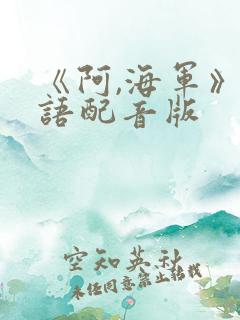 《阿,海軍》
語配音版
空知英秋
未經同意禁止轉載